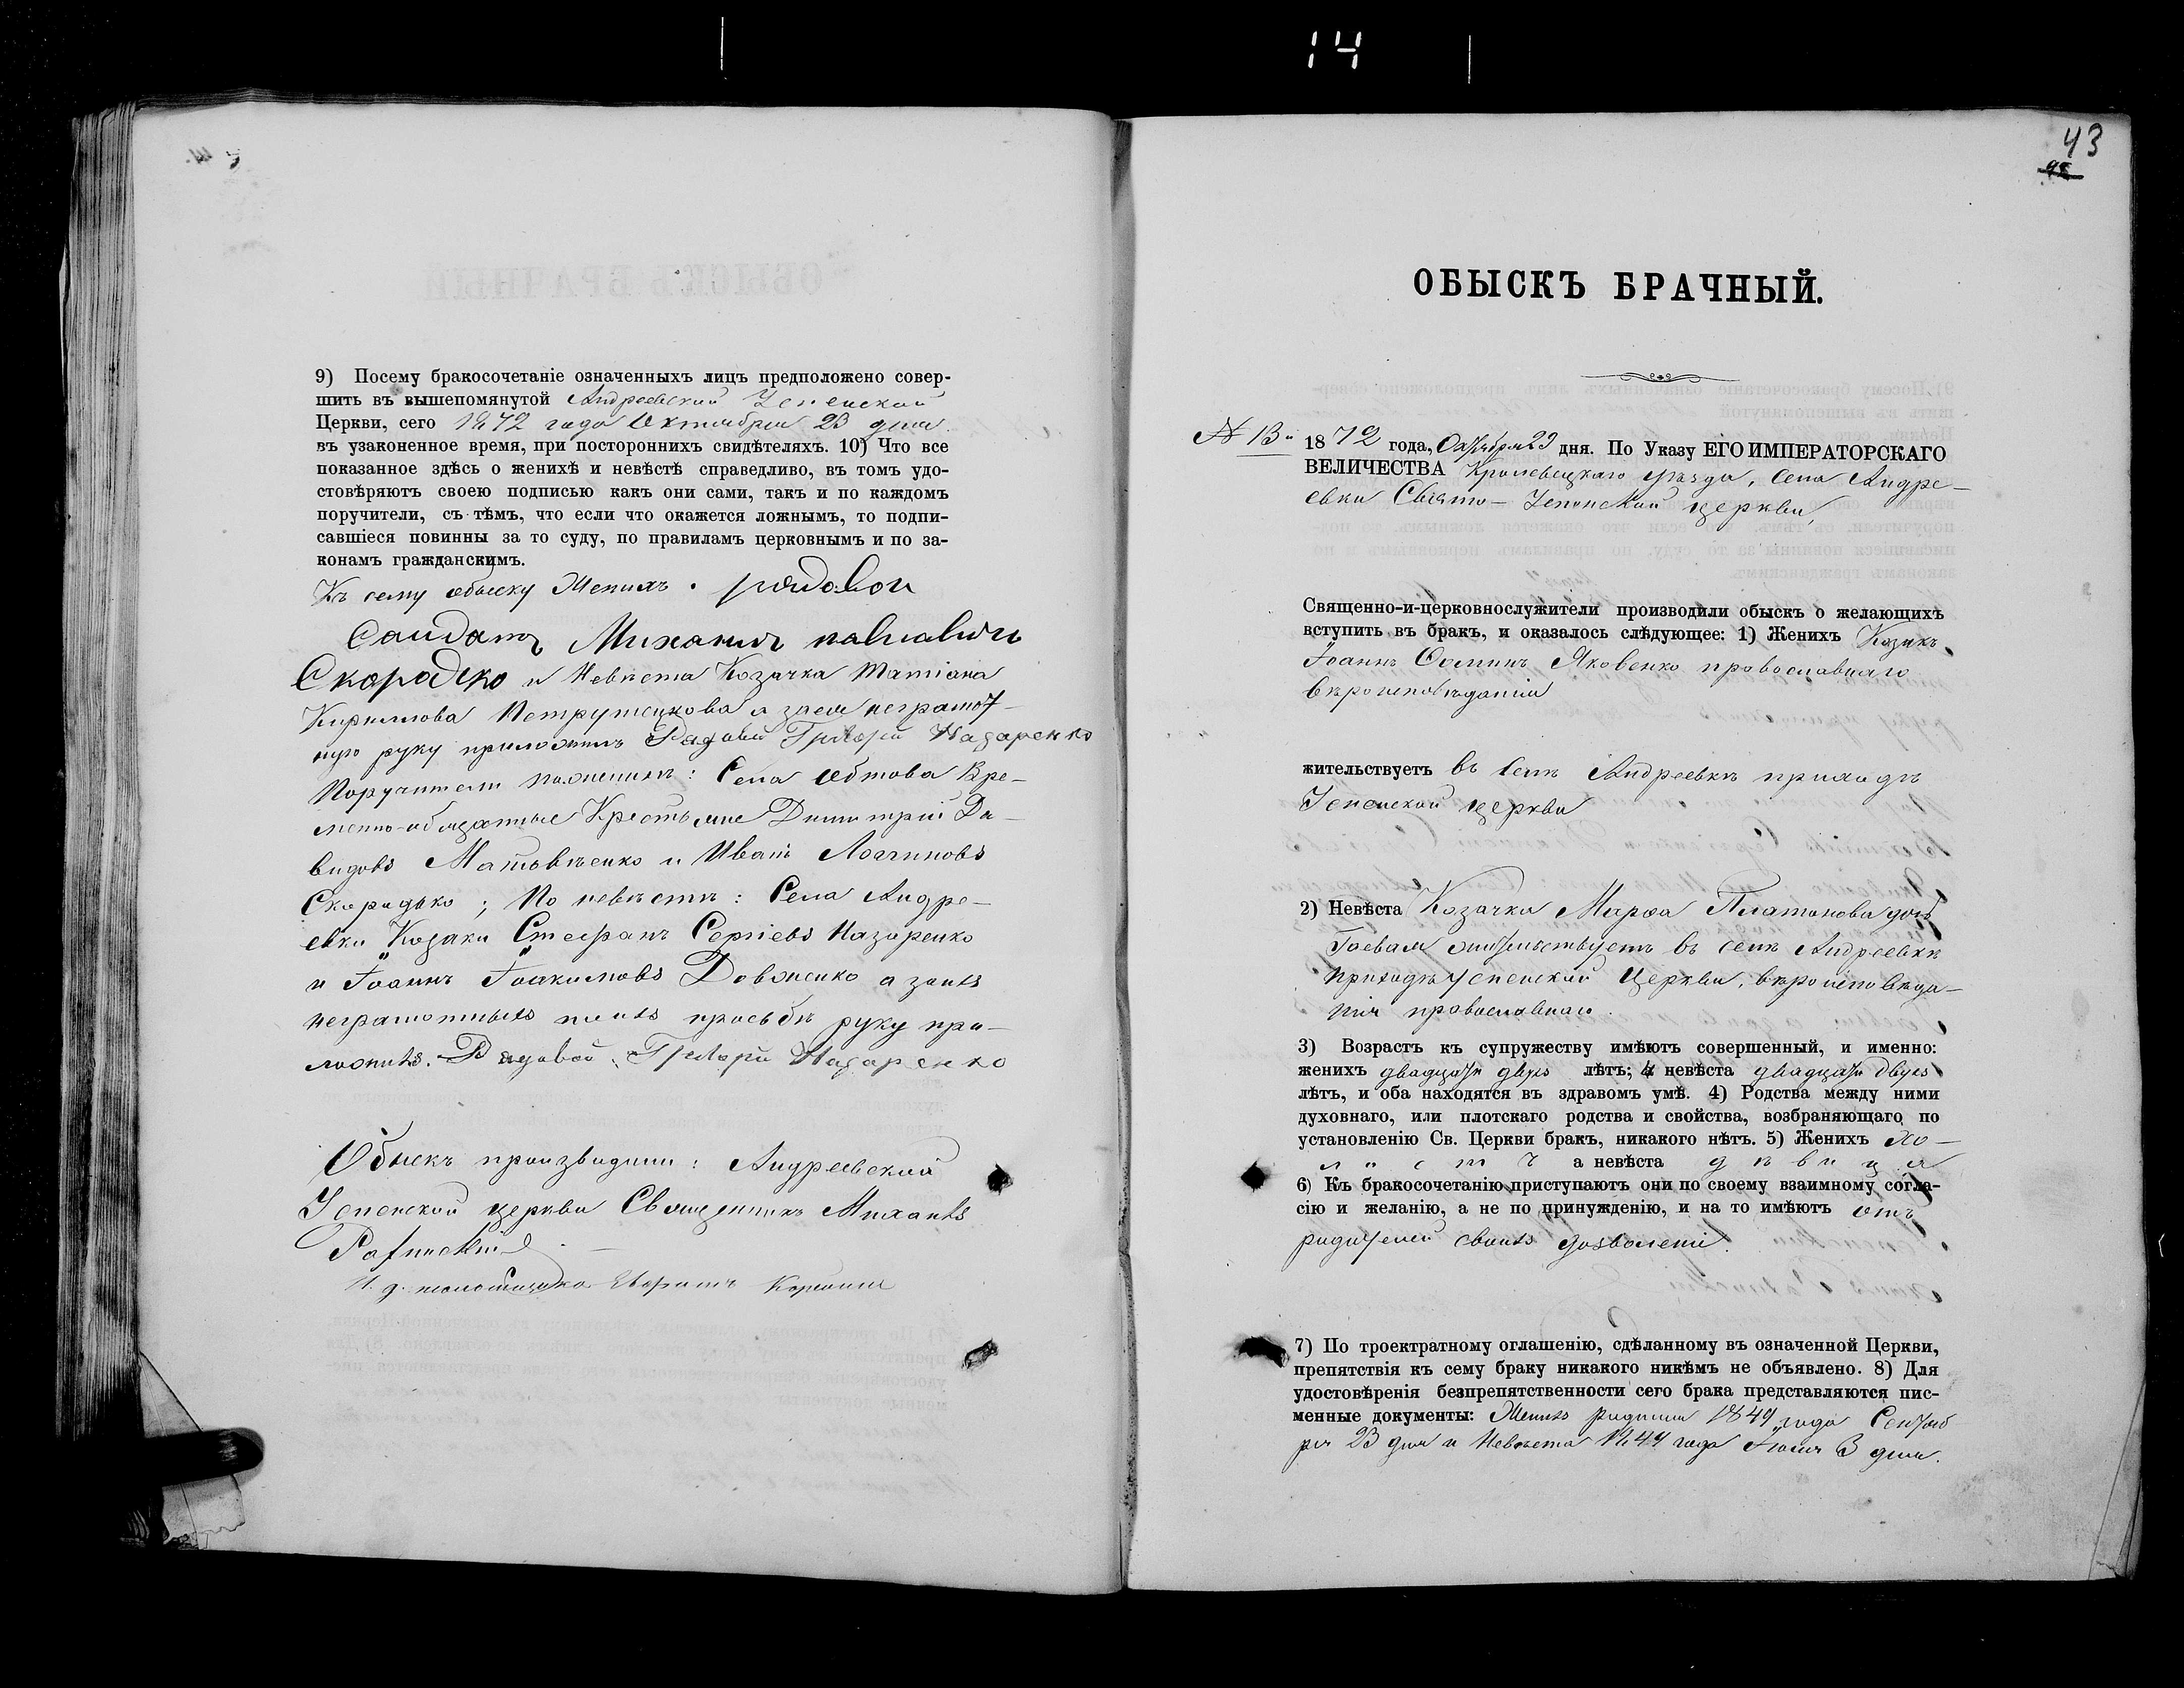 14
9) Посему бракосочетаніе означенныхъ лицъ предположено совер-
шить въ вышепомянутой Андреевской Успенской
Церкви, сего 1872 года Октября 23 дня
въ узаконенное время, при постороннихъ свидѣтеляхъ. 10) Что все
показанное здѣсь о женихѣ и невѣстѣ справедливо, въ томъ удо-
стовѣряютъ своею подписью какъ они сами, такъ и по каждомъ
поручители, съ тѣмъ, что если что окажется ложнымъ, то подпи-
савшіеся повинны за то суду, по правиламъ церковнымъ и по за-
конамъ гражданскимъ.
Къ сему обыску Женихъ рядовои
Салдатъ Михаилъ
Скорадко и Невѣста Козачка Татіана
Кириллова а за неграмот-
ную руку приложилъ Рядовой Григорій Назаренко
Поручители по женихѣ: Села Обтова Вре-
менно-обязанные Крестьяне Димитрій Да-
видовъ Матвѣенко и Иванъ Логгиновъ
Скоридько; По невѣстѣ: Села Андре-
евки Козаки Стефанъ Сергіевъ Назаренко
и Іоаннъ Іоакимовъ Довженко а за ихъ
неграмотныхъ по ихъ просьбѣ руку при-
ложилъ. Рядовой Григорій Назаренко
Обыскъ производили: Андреевской
Успенской церкви Священникъ Михаилъ
И. д. псаломщика
43
ОБЫСКЪ БРАЧНЫЙ.
№ 13й 1872 года, Октября 29 дня. По Указу ЕГО ИМПЕРАТОРСКАГО
ВЕЛИЧЕСТВА Кролевецкаго уѣзда, села Андре-
евки Свято-Успенской церкви,
Священно-и-церковнослужители производили обыскъ о желающихъ
вступить въ бракъ, и оказалось слѣдующее: 1) Женихъ Козакъ
Іоаннъ Ѳоминъ Яковенко православнаго
вѣроисповѣданія
жительствуетъ въ селѣ Андреевкѣ приходѣ
Успенской церкви
2) Невѣста Козачка Марѳа Платонова дочь
Гаевая жительствуетъ въ селѣ Андреевкѣ
приходѣ Успенской церкви, вѣроисповѣда-
нія православнаго.
3) Возрастъ къ супружеству имѣютъ совершенный, и именно:
женихъ двадцати двухъ лѣтъ; невѣста двадцати двухъ
лѣтъ, и оба находятся въ здравомъ умѣ. 4) Родства между ними
духовнаго, или плотскаго родства и свойства, возбраняющаго по
установленію Св. Церкви бракъ, никакого нѣтъ. 5) Женихъ хо-
лостъ а невѣста дѣвица
6) Къ бракосочетанію приступаютъ они по своему взаимному согла-
сію и желанію, а не по принужденію, и на то имѣютъ отъ
родителей своихъ дозволеніе.
7) По троектратному оглашенію, сдѣланному въ означенной Церкви,
препятствія къ сему браку никакого никѣмъ не объявлено. 8) Для
удостовѣренія безпрепятственности сего брака представляются пис-
менные документы: Женихъ родился 1849 года Сентяб
ря 23 дня и Невѣста 1849 года Іюля 3 дня.